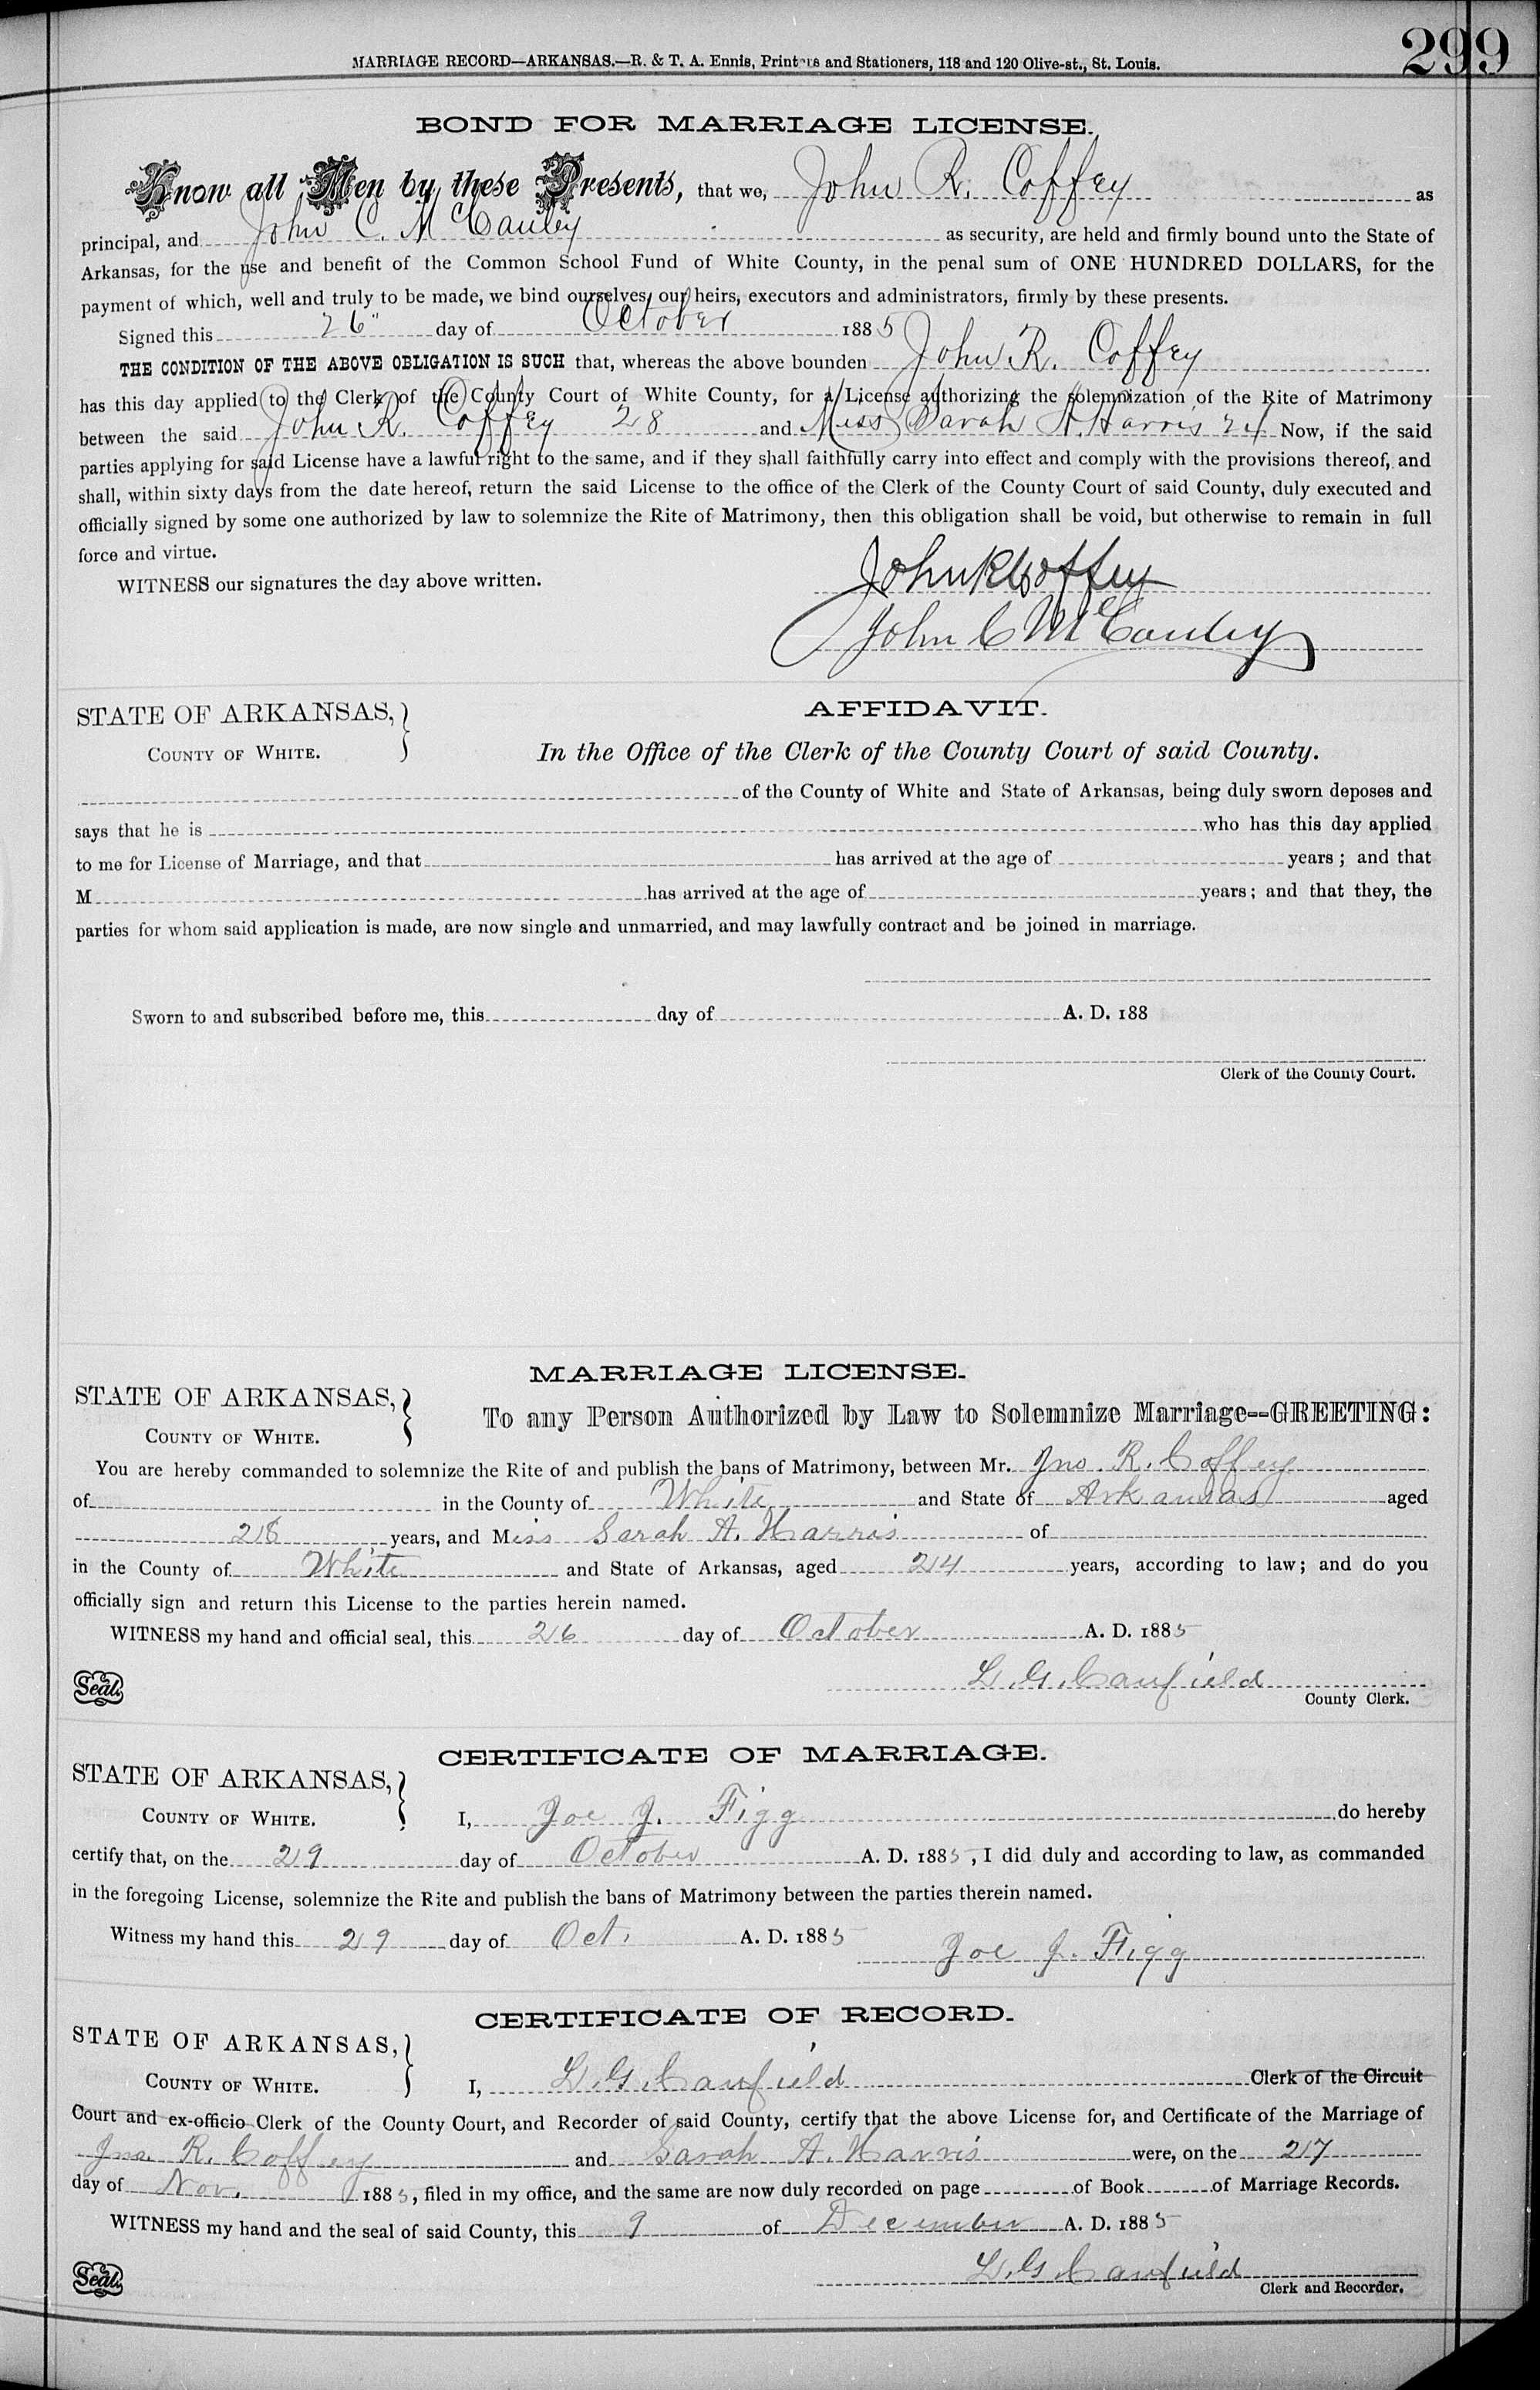 299
MARRIAGE RECORD—ARKANSAS.—R. & T. A. Ennis, Printers and Stationers, 118 and 120 Olive-st., St. Louis.
BOND FOR MARRIAGE LICENSE.
Know all Men by these Presents, that we, John R. Coffey as
principal, and John C. McCauley as security, are held and firmly bound unto the State of
Arkansas, for the use and benefit of the Common School Fund of White County, in the penal sum of ONE HUNDRED DOLLARS, for the
payment of which, well and truly to be made, we bind ourselves, our heirs, executors and administrators, firmly by these presents.
Signed this 26" day of October 1885
THE CONDITION OF THE ABOVE OBLIGATION IS SUCH that, whereas the above bounden John R. Coffey
has this day applied to the Clerk of the County Court of White County, for a License authorizing the solemnization of the Rite of Matrimony
between the said John R. Coffey 28 and Miss Sarah A. Harris 24 Now, if the said
parties applying for said License have a lawful right to the same, and if they shall faithfully carry into effect and comply with the provisions thereof, and
shall, within sixty days from the date hereof, return the said License to the office of the Clerk of the County Court of said County, duly executed and
officially signed by some one authorized by law to solemnize the Rite of Matrimony, then this obligation shall be void, but otherwise to remain in full
force and virtue.
WITNESS our signatures the day above written.
John R Coffey
John C McCauley
STATE OF ARKANSAS,
COUNTY OF WHITE.
AFFIDAVIT.
In the Office of the Clerk of the County Court of said County.
of the County of White and State of Arkansas, being duly sworn deposes and
says that he is who has this day applied
to me for License of Marriage, and that has arrived at the age of years; and that
M has arrived at the age of years; and that they, the
parties for whom said application is made, are now single and unmarried, and may lawfully contract and be joined in marriage.
Sworn to and subscribed before me, this day of A. D. 188
Clerk of the County Court.
MARRIAGE LICENSE.
STATE OF ARKANSAS,
COUNTY OF WHITE.
To any Person Authorized by Law to Solemnize Marriage--GREETING:
You are hereby commanded to solemnize the Rite of and publish the bans of Matrimony, between Mr. Jno. R. Coffey
of in the County of White and State of Arkansas aged
28 years, and Miss Sarah A. Harris of
in the County of White and State of Arkansas, aged 24 years, according to law; and do you
officially sign and return this License to the parties herein named.
WITNESS my hand and official seal, this 26 day of October A. D. 1885
Seal.
L. G. Canfield
County Clerk.
CERTIFICATE OF MARRIAGE.
STATE OF ARKANSAS,
COUNTY OF WHITE.
I, Joe J. Figg do hereby
certify that, on the 29 day of October A. D. 1885, I did duly and according to law, as commanded
in the foregoing License, solemnize the Rite and publish the bans of Matrimony between the parties therein named.
Witness my hand this 29 day of Oct. A. D. 1885
Joe J. Figg
CERTIFICATE OF RECORD.
STATE OF ARKANSAS,
COUNTY OF WHITE.
I, L. G. Canfield Clerk of the Circuit
Court and ex-officio Clerk of the County Court, and Recorder of said County, certify that the above License for, and Certificate of the Marriage of
Jno. R. Coffey and Sarah A. Harris were, on the 27
day of Nov. 1885, filed in my office, and the same are now duly recorded on page of Book of Marriage Records.
WITNESS my hand and the seal of said County, this 9 of December A. D. 1885
Seal.
L. G. Canfield
Clerk and Recorder.